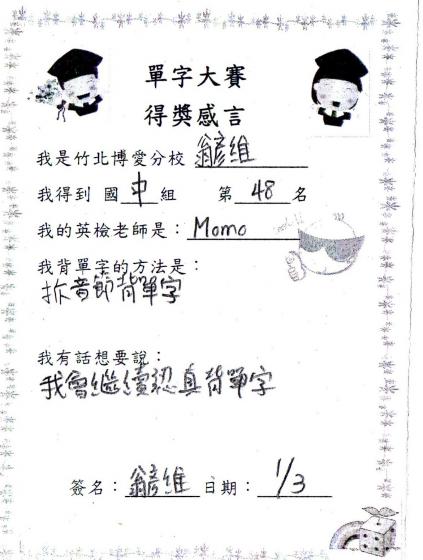 單字大賽
得獎感言
我是竹北博愛分校 翁彥維
我得到 國中組 第48名
我的英檢老師是：Momo
我背單字的方法是：
抓音節背單字
我有話想要說：
我會繼續認真背單字
簽名：翁彥維 日期：1/3